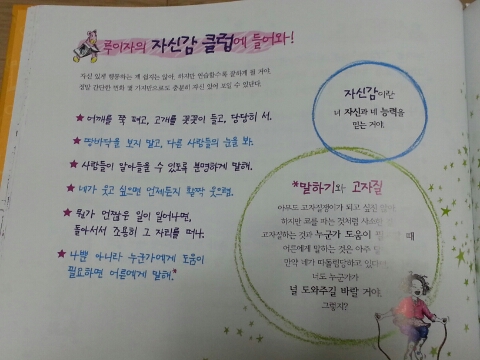 루이자의 자신감 클럽에 들어와!
자신 있게 행동하는 게 쉽지는 않아. 하지만 연습할수록 쉽게 될 거야.
정말 간단한 변화 몇 가지만으로도 충분히 자신 있어 보일 수 있단다.
★ 어깨를 쫙 펴고, 고개를 꼿꼿이 들고, 당당히 서.
★ 땅바닥을 보지 말고, 다른 사람들의 눈을 봐.
★ 사람들이 알아들을 수 있도록 분명하게 말해.
★ 네가 웃고 싶으면 언제든지 활짝 웃으렴.
★ 뭔가 언짢은 일이 일어나면,
돌아서서 조용히 그 자리를 떠나.
★ 나쁜 아니라 누군가에게 도움이
필요하면 어른에게 말해.*
자신감이란
너 자신과 네 능력을
믿는 거야.
*말하기와 고자질
아무도 고자질쟁이가 되고 싶진
하지만 코를 파는 것처럼 사소한
고자질하는 것과 누군가 도움이 때
어른에게 말하는 것은 아주
만약 네가 따돌림당하고 있다면
너도 누군가가
널 도와주길 바랄 거야.
그렇지?